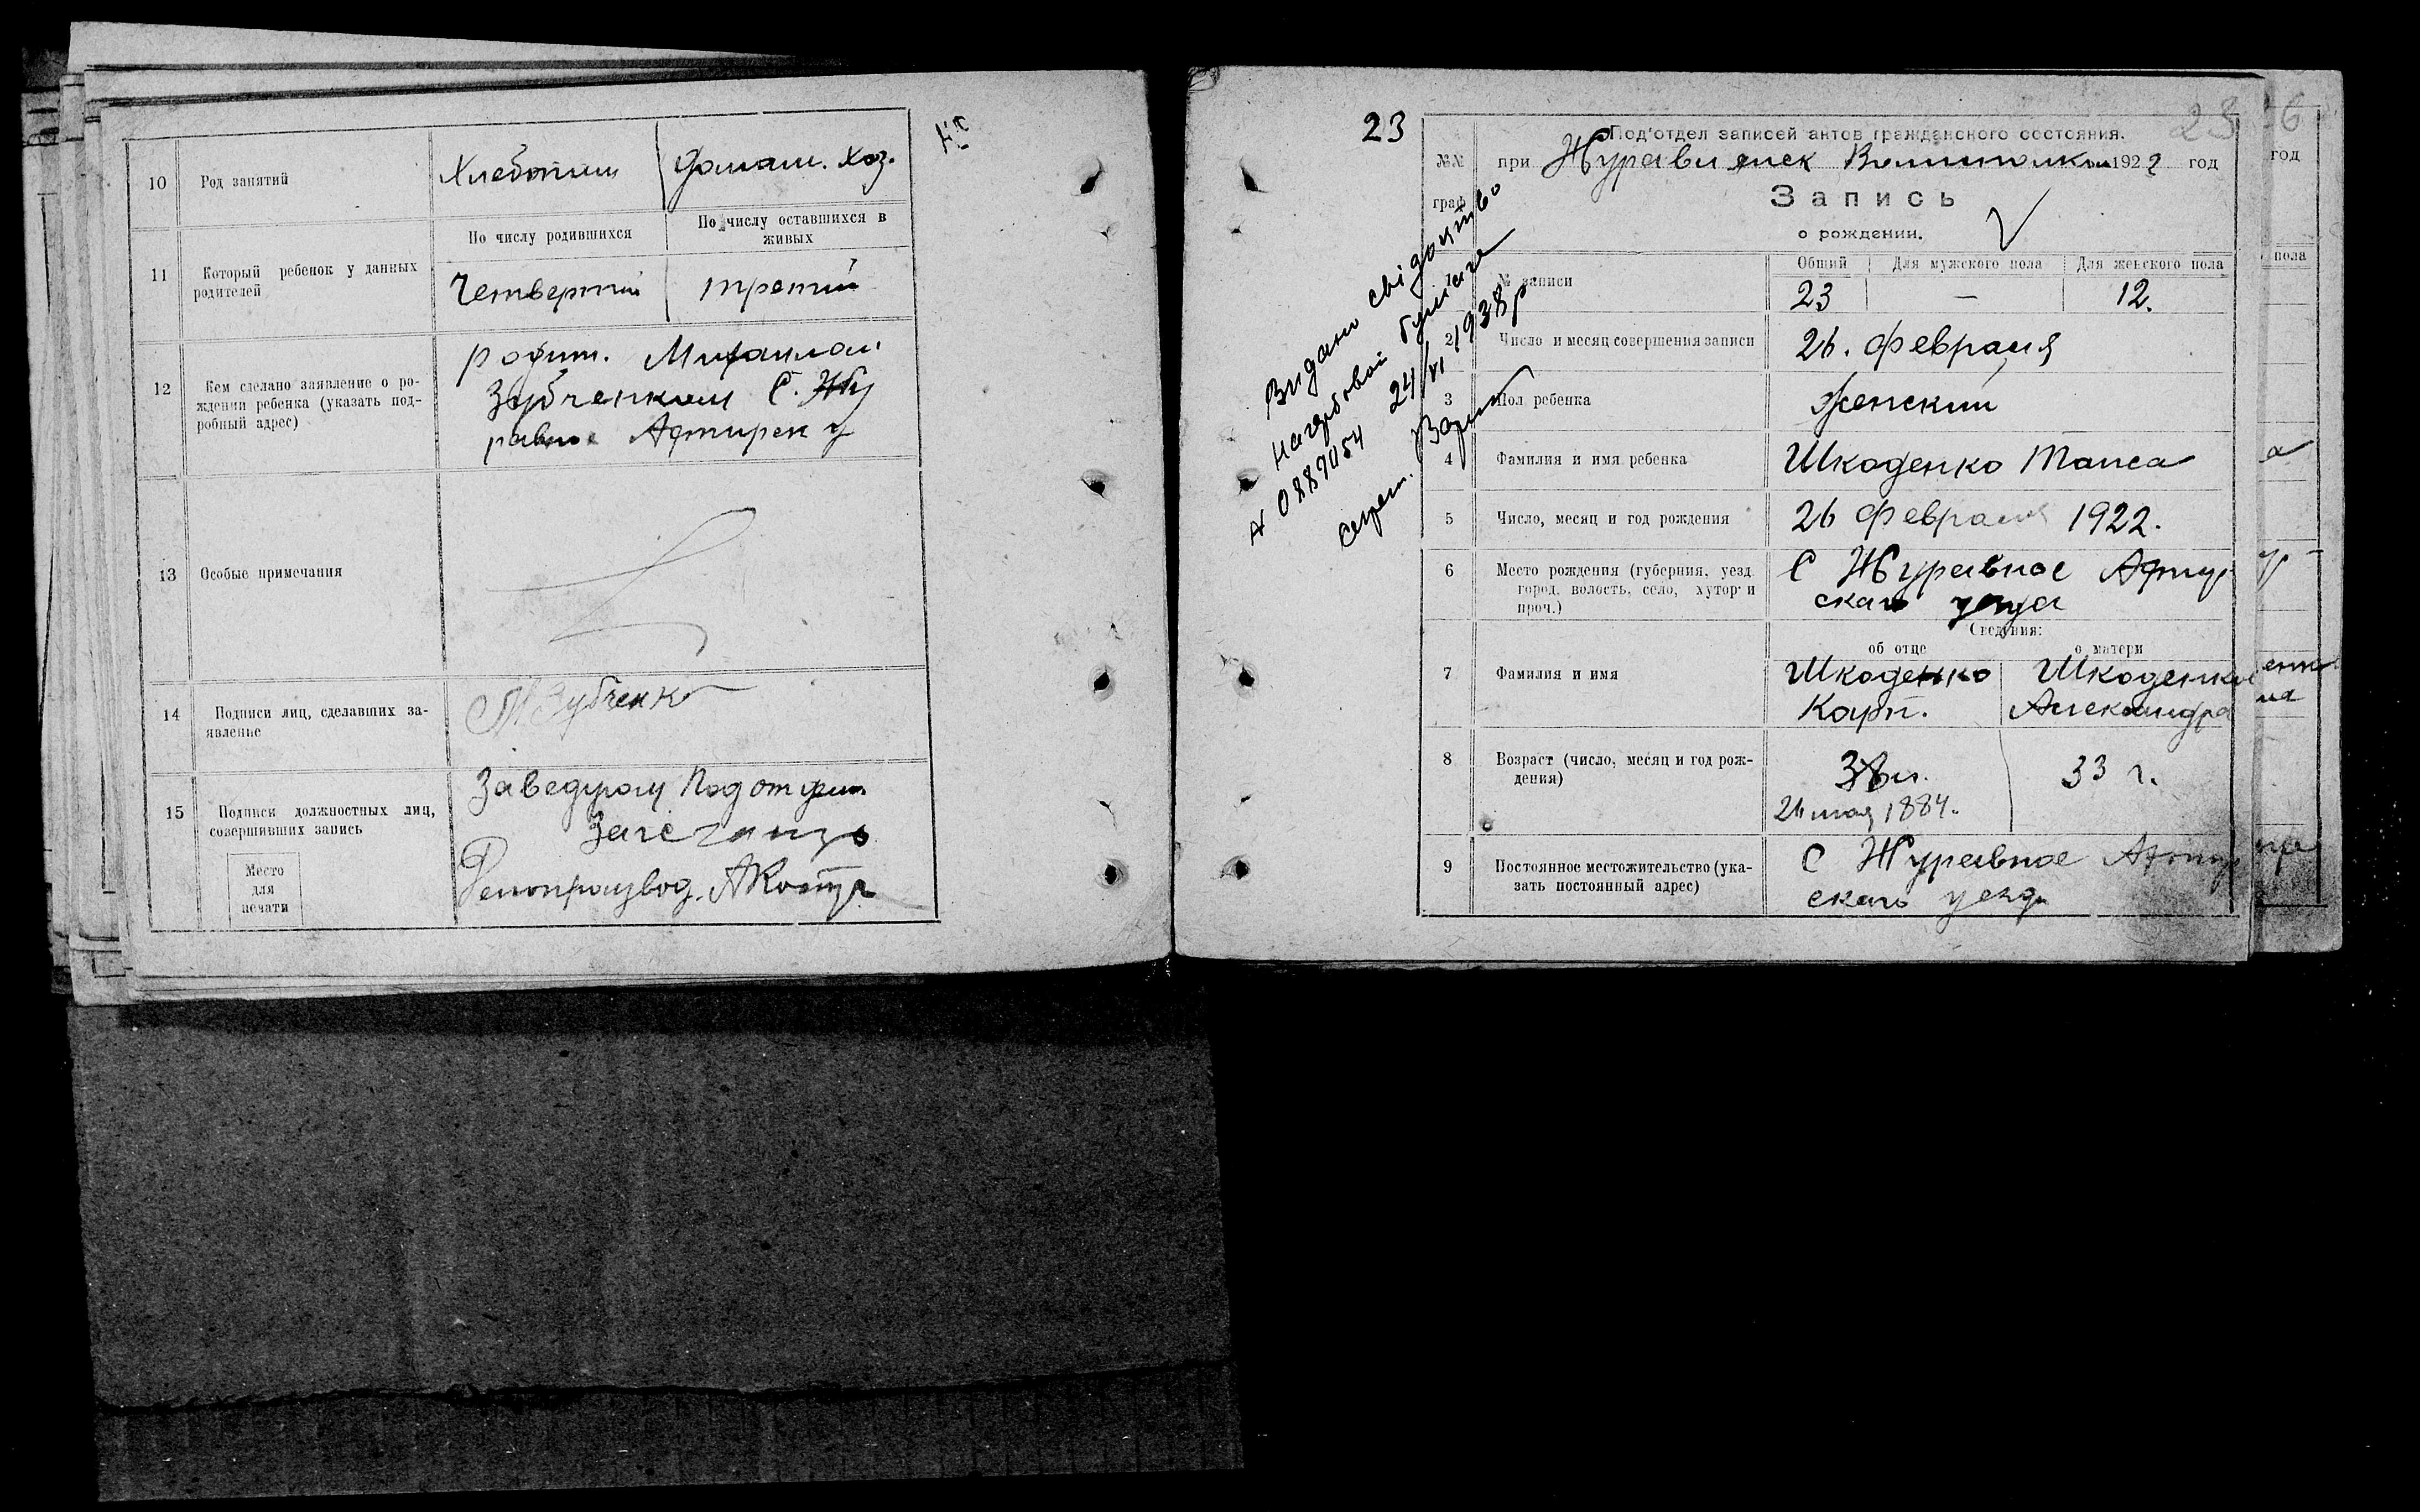 10 Род занятий Хлебопаш Домаш. хоз.
11 Который ребенок у данных родителей
По числу родившихся По числу оставшихся в живых
Четвертий третий
12 Кем сделано заявление о ро-
ждении ребенка (указать под-
робный адрес)
родит. Михаилом
Зубченком С. Жу
равное Ахтирск у
13 Особые примечания
14 Подписи лиц, сделавших за-
явление
М Зубченко
15 Подписи должностных лиц,
совершивших запись
Место
для
печати
Заведующ Подотдела
Делопроизвод.
23
23
26
Под'отдел записей актов гражданского состояния.
№№ граф
при 1922 год
Запись
о рождении.
Общий Для мужского пола Для женского пола
№ записи 23 — 12.
2 Число и месяц совершения записи 26. февраля
3 Пол ребенка женский
4 Фамилия и имя ребенка Шкоденко Таиса
5 Число, месяц и год рождения 26 февраля 1922.
6 Место рождения (губерния, уезд
город, волость, село, хутор и
проч.)
С Журавное Ахтир
скаго уезда
Сведения:
об отце о матери
7 Фамилия и имя Шкоденко Шкоденко
Карп. Александра
8 Возраст (число, месяц и год рож-
дения)
33 г.
26 мая 1884.
9 Постоянное местожительство (ука-
зать постоянный адрес)
С Журавное Ахтир
скаго уезда
Видано свідоцтво
на гербовой бумаге
№ 0887054 24/VI 1938р
секрет.
год
пола